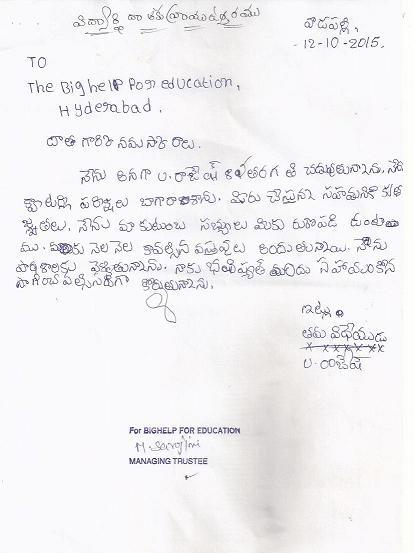 వాడపల్లి,
12-10-2015.
TO
The Bighelp For education,
Hyderabad.
దాత గారికి నమస్కారాలు.
నేను అనగా U. రాజేష్ 6వ తరగతి చదువుతున్నాను. నేను
పరీక్షలు బాగా రాశాను. మీరు చేస్తున్న సహాయానికి కృత
జ్ఞతలు. నేను మా కుటుంబ సభ్యులు మీకు రుణపడి ఉంటా
ము. నెల నెల కావల్సిన వస్తువులు అందుతున్నాయి. నేను
పాఠశాలకు వెళ్ళుతున్నాను. నాకు భవిష్యత్ సహాయం
కోరుతున్నాను.
ఇట్లు
తమ విధేయుడు
U. రాజేష్
For BIGHELP FOR EDUCATION
M. Sarojini
MANAGING TRUSTEE